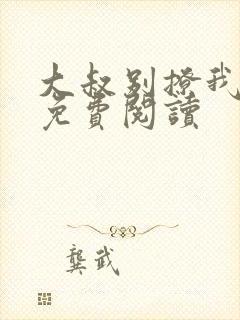 大叔别撩我
免費閱讀
龔武